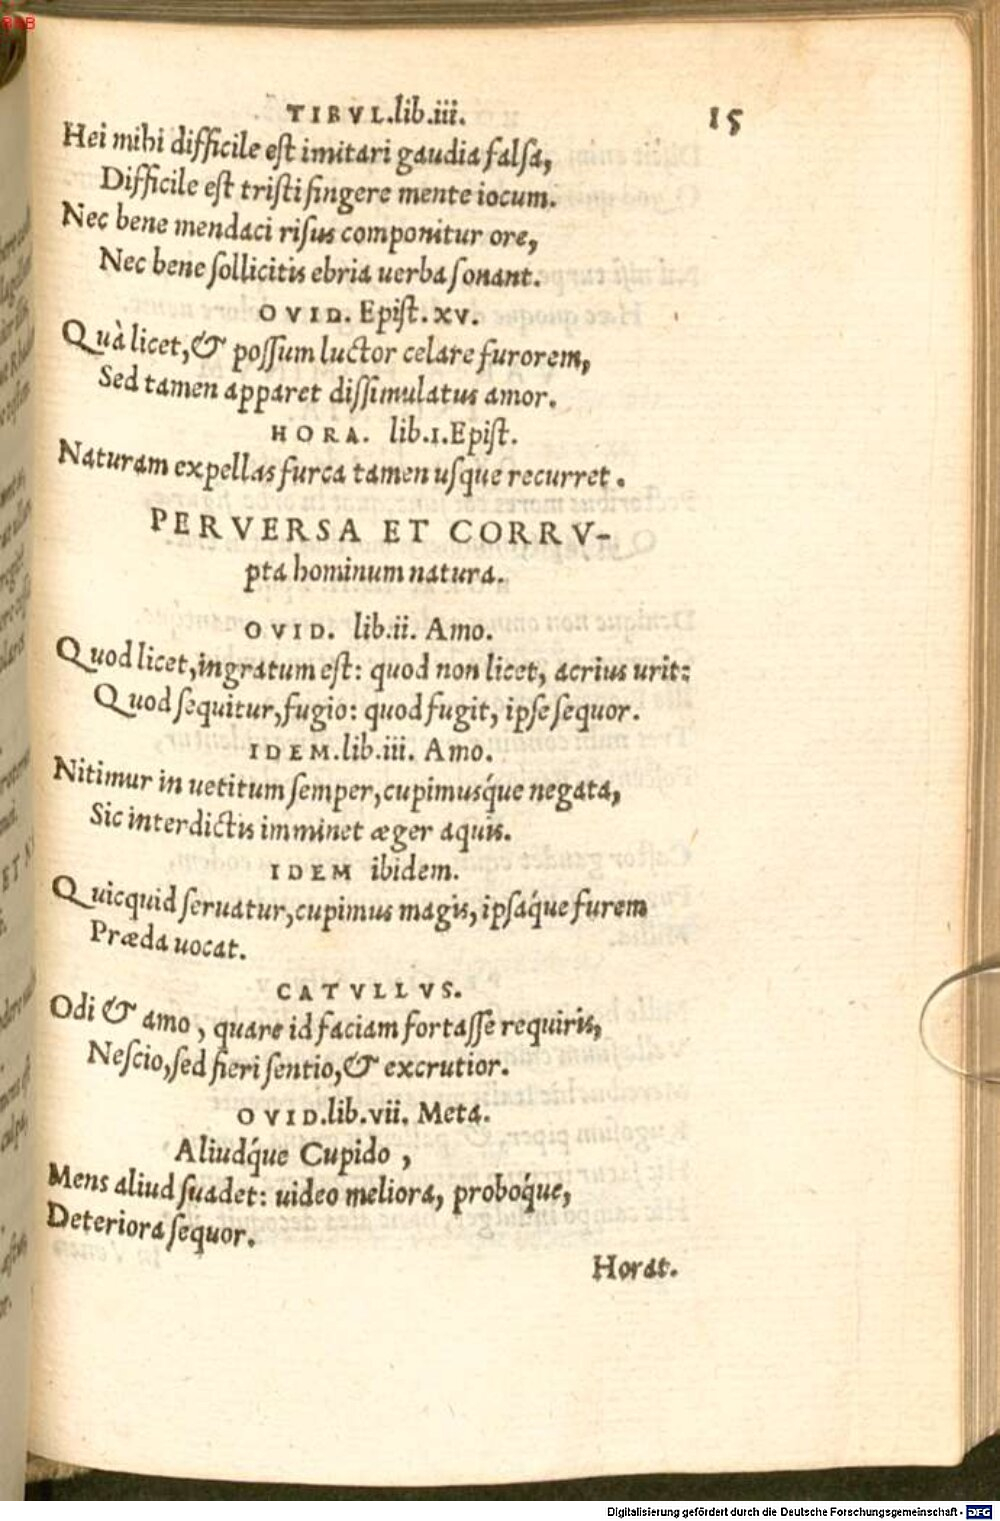 TIBVL.lib.iii. 15
Hei mihi difficile est imitari gaudia falsa,
Difficile est tristi fingere mente iocum.
Nec bene mendaci risus componitur ore,
Nec bene sollicitis ebria uerba sonant.
OVID. Epist.xv.
Quà licet,& possum luctor celare furorem,
Sed tamen apparet dissimulatus amor.
HORA. lib.1.Epist.
Naturam expellas furca tamen usque recurret.
PERVERSA ET CORRV-
pta hominum natura.
OVID. lib.ii. Amo.
Quod licet,ingratum est: quod non licet, acrius urit:
Quod sequitur,fugio: quod fugit, ipse sequor.
IDEM.lib.iii. Amo.
Nitimur in uetitum semper,cupimusq́ue negata,
Sic interdictis imminet æger aquis.
IDEM ibidem.
Quicquid seruatur,cupimus magis, ipsaq́ue furem
Præda uocat.
CATVLLVS.
Odi & amo, quare id faciam fortasse requiris,
Nescio,sed fieri sentio,& excrutior.
OVID.lib.vii. Meta.
Aliudq́ue Cupido,
Mens aliud suadet: uideo meliora, proboq́ue,
Deteriora sequor.
Horat.
Digitalisierung gefördert durch die Deutsche Forschungsgemeinschaft - DFG